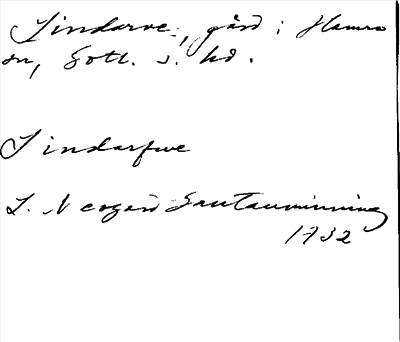 Sindarve, gård i Hamra
sn, Gotl. s. hd.
Sindarfwe
L. Neogard Gautauminning
1732